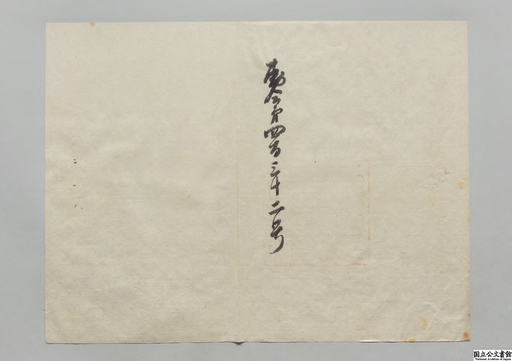 勅令第四百三十二号
国立公文書館
National Archives of Japan